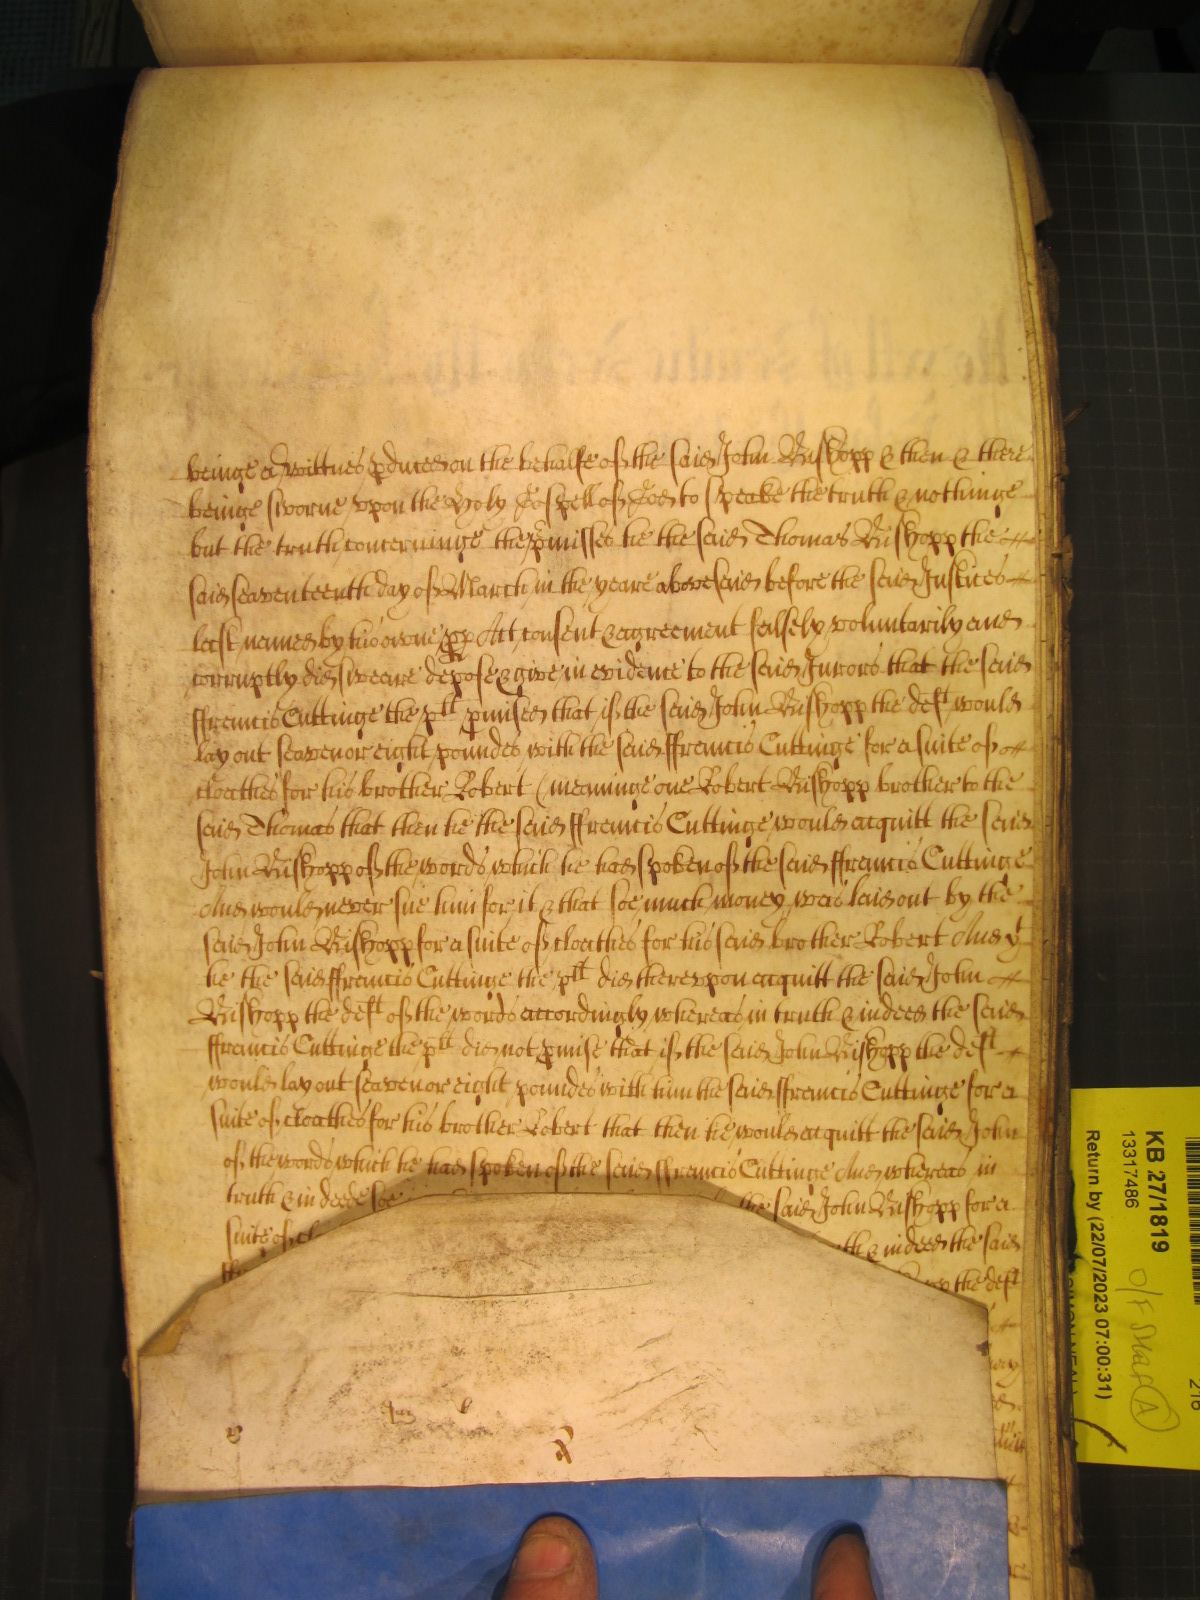 beinge a wittnes pduced on the behalfe of the said John Bishopp & then & there
beinge sworne vpon the Holy Gospell of God to speake the truth & nothinge
but the truth concerninge the pmisses he the said Thomas Bishopp the
said seaventeenth day of March in the yeare abovesaid before the said Justices
last named by his owne pp Act consent & agreement falsely voluntarily and
corruptly did sweare depose & give in evidence to the said Jurors that the said
ffrancis Cuttinge the plt pmised that if the said John Bishopp the deft would
lay out seaven or eight poundes with the said ffrancis Cuttinge for a suite of
cloathes for his brother Robert (meaninge one Robert Bishopp brother to the
said Thomas that then he the said ffrancis Cuttinge would acquitt the said
John Bishopp of the words which he had spoken of the said ffrancis Cuttinge
And would never sue him for it & that soe much money was laid out by the
said John Bishopp for a suite of cloathes for his said brother Robert And yt
he the said ffrancis Cuttinge the plt did therevpon acquitt the said John
Bishopp the deft of the words accordingly whereas in truth & indeed the said
ffrancis Cuttinge the plt did not pmise that if the said John Bishopp the deft
would lay out seaven or eight poundes with him the said ffrancis Cuttinge for a
suite of cloathes for his brother Robert that then he would acquitt the said John
of the words which he had spoken of the said ffrancis Cuttinge And whereas in
truth & indeede soe the said John Bishopp for a
suite of & indeed the said
the deft
KB 27/1819
13317486
Return by (22/07/2023 07:00:31)
O/F
A